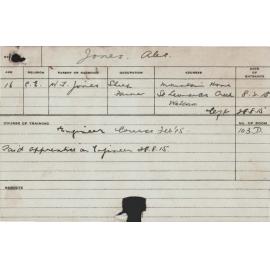 Jones, Alec.
AGE RELIGION PARENT OR GUARDIAN OCCUPATION ADDRESS DATE OF ENTRANCE
16 C.E. W. J. Jones Sheep Farmer Mountain Home 8.2.15
St Leonards Creek
Walcha
Left 28.8.15
COURSE OF TRAINING NO. OF ROOM
Engineer Course Feb '15 103 D.
Paid apprentice on Engineer 28.8.15
REMARKS